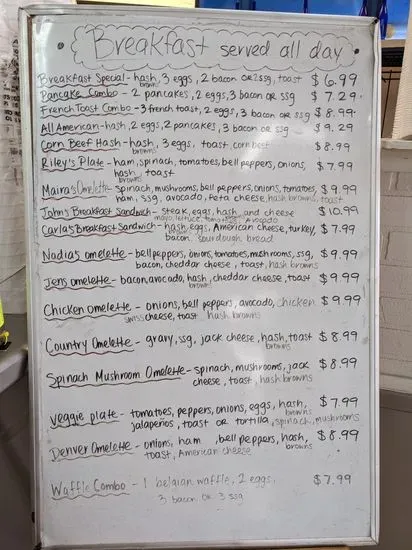 Breakfast served all day
Breakfast Special - hash, 3 eggs, 2 bacon or 2 ssg, toast $6.99
browns
Pancake Combo - 2 pancakes, 2 eggs, 3 bacon or ssg $7.29
French Toast Combo - 3 french toast, 2 eggs, 3 bacon or ssg $8.99
All American - hash, 2 eggs, 2 pancakes, 3 bacon or ssg $9.29
Corn Beef Hash - hash, 3 eggs, toast, corn beef $8.99
browns
Riley's Plate - ham, spinach, tomatoes, bell peppers, onions, $7.99
hash, toast
browns
Maira's Omelette - spinach, mushrooms, bell peppers, onions, tomatoes, $9.99
ham, ssg, avocado, feta cheese, hash browns, toast
John's Breakfast Sandwich - steak, eggs, hash, and cheese $10.99
mayo, lettuce, tomatoes, avocado
Carla's Breakfast Sandwich - hash, eggs, American cheese, turkey, $7.99
browns
bacon, sourdough bread
Nadia's omelette - bell peppers, onions, tomatoes, mushrooms, ssg, $9.99
bacon, cheddar cheese, toast, hash browns
Jens omelette - bacon, avocado, hash, cheddar cheese, toast $9.99
browns
Chicken omelette - onions, bell peppers, avocado, chicken $9.99
swiss cheese, toast hash browns
Country Omelette - gravy, ssg, jack cheese, hash, toast $8.99
browns
Spinach Mushroom Omelette - spinach, mushrooms, jack $8.99
cheese, toast, hash browns
Veggie plate - tomatoes, peppers, onions, eggs, hash, $7.99
browns
jalapeños, toast or tortilla, spinach, mushrooms
Denver Omelette - onions, ham, bell peppers, hash, $8.99
browns
toast, American cheese
Waffle Combo - 1 belgian waffle, 2 eggs, $7.99
3 bacon or 3 ssg